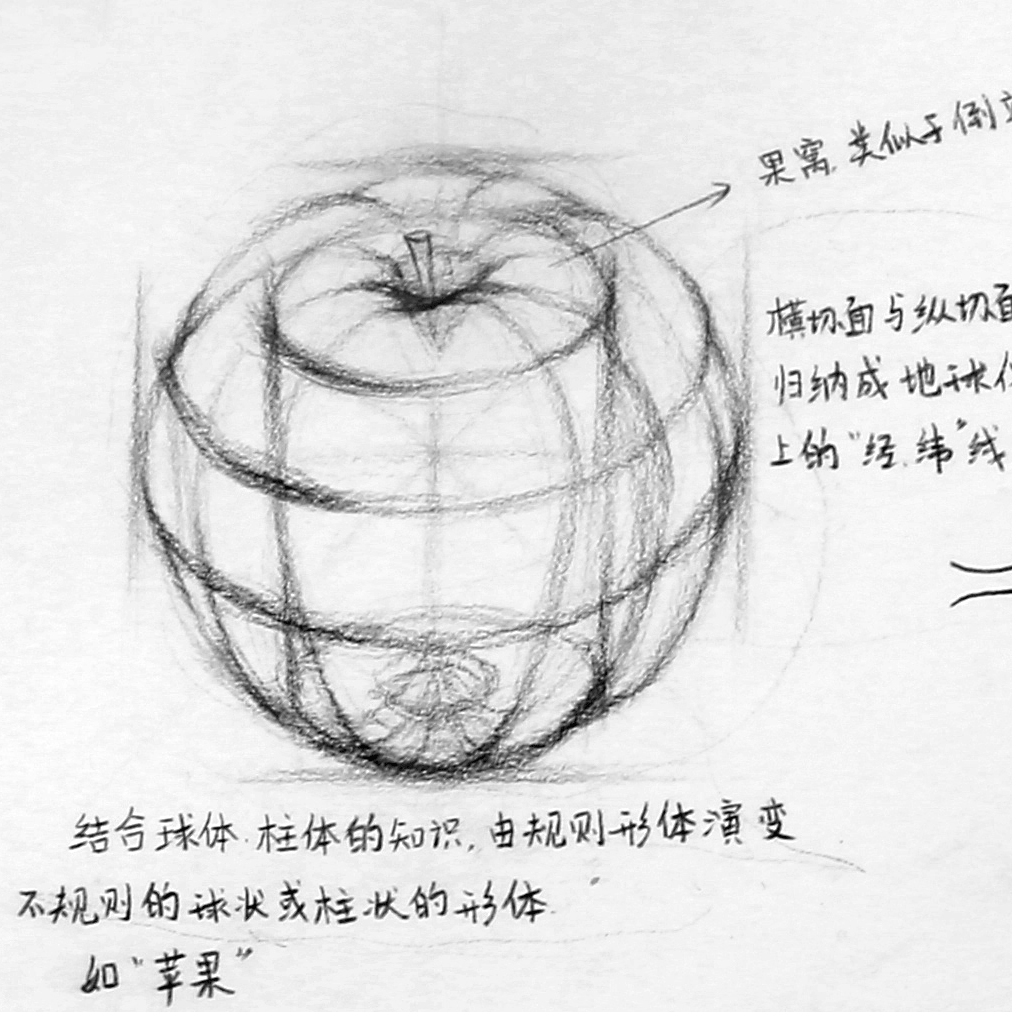 果窝.类似于倒
横切面与纵切面
归纳成地球
上的“经.纬”线
结合球体.柱体的知识,由规则形体演变
不规则的球状或柱状的形体
如“苹果”